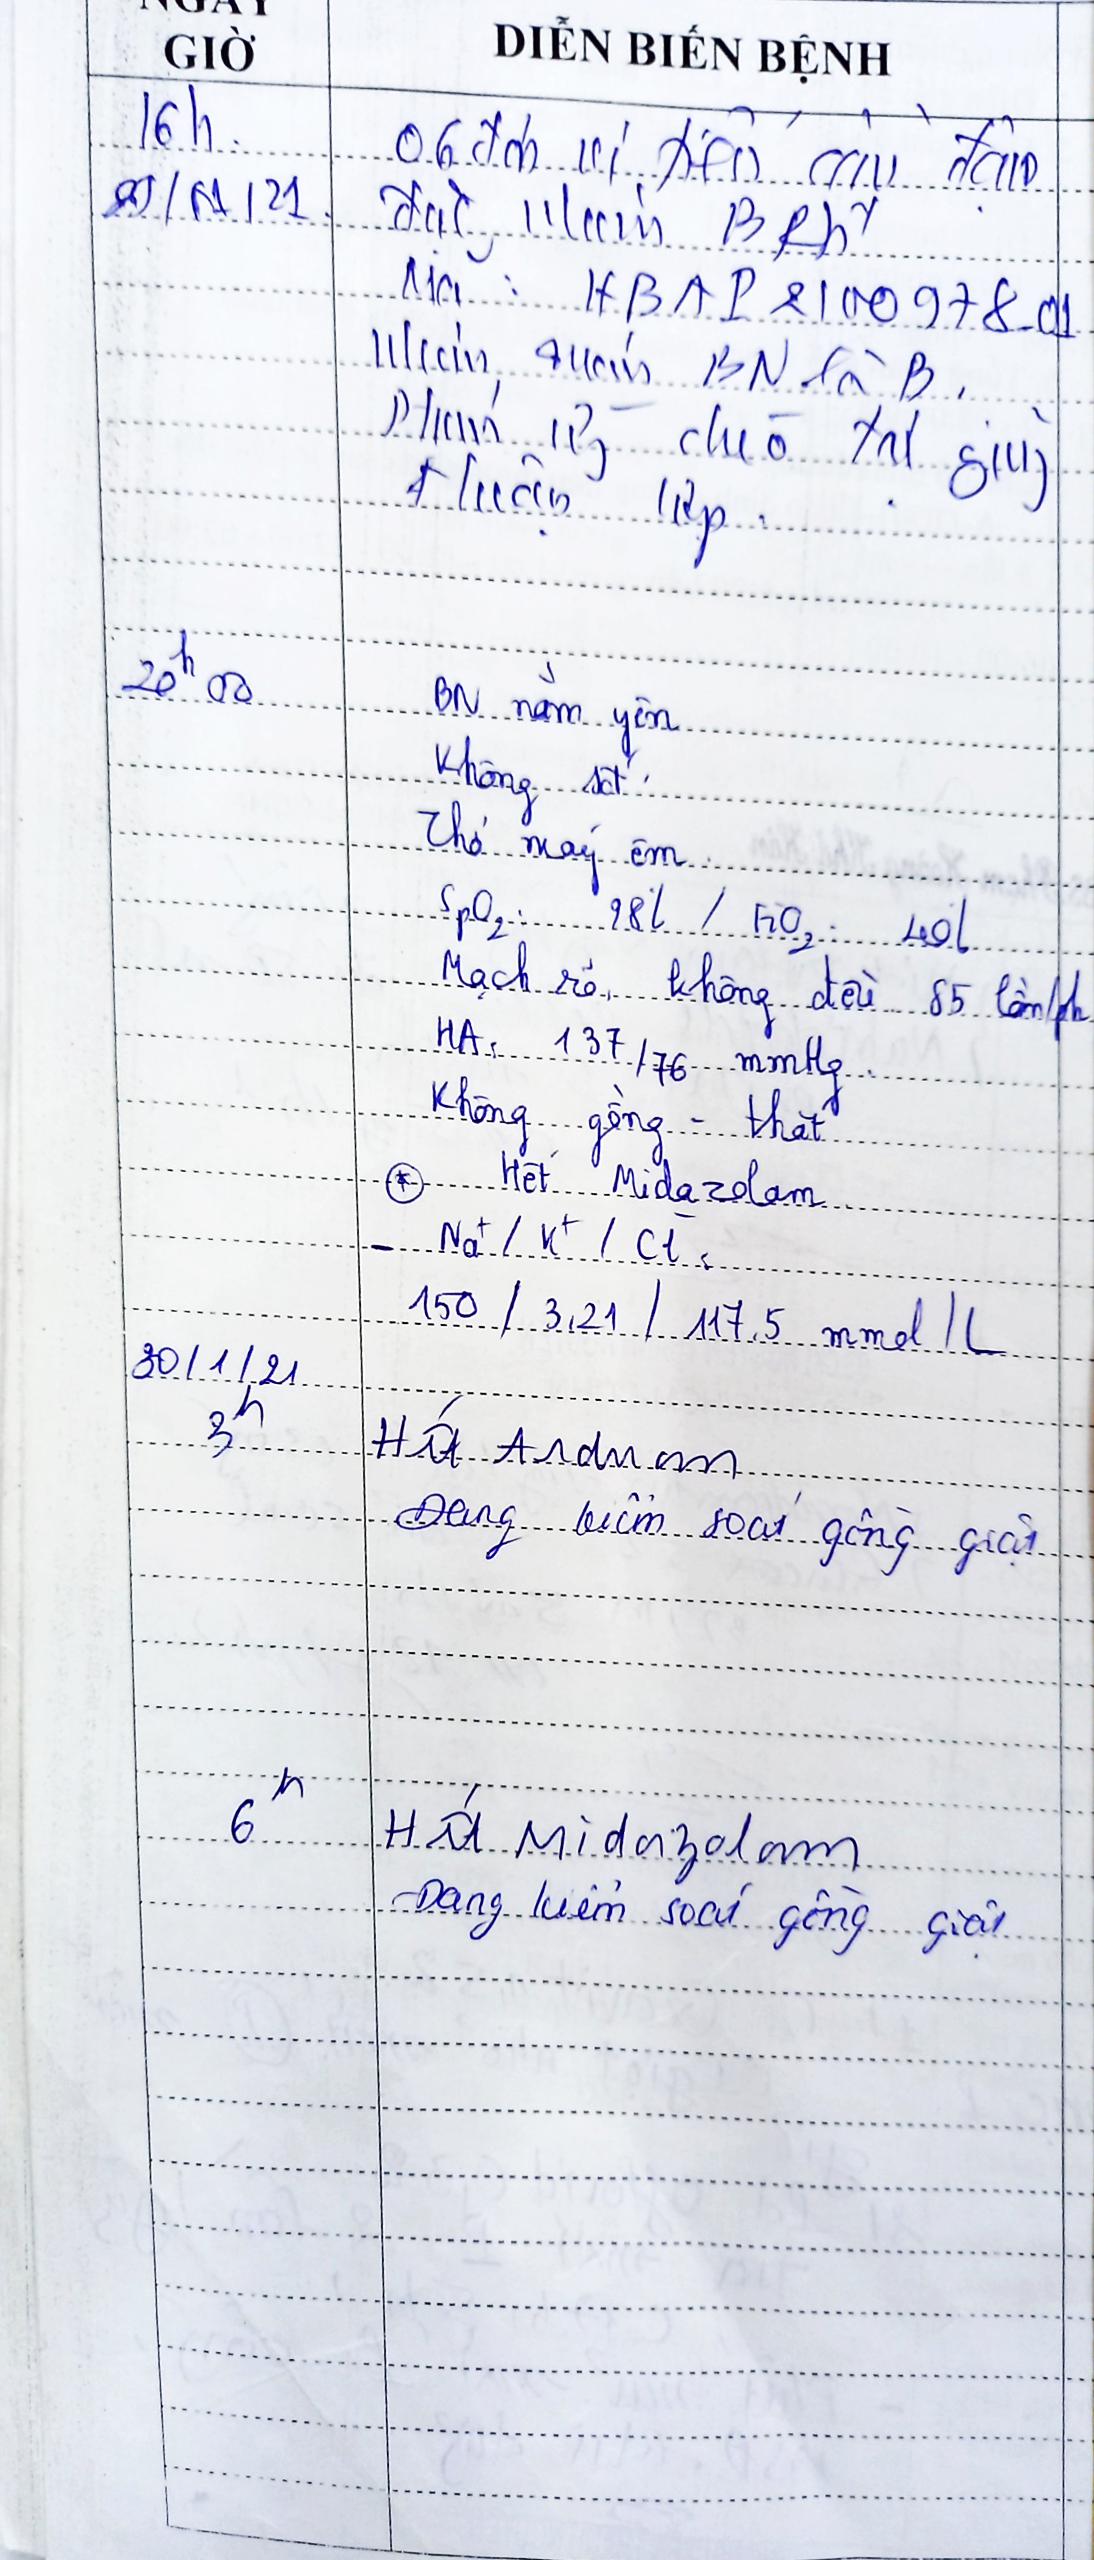 NGÀY
GIỜ
DIỄN BIẾN BỆNH
16h
06 đơn vị tiểu cầu đậm
/21
đặc, nhóm B Rh+
Mã : HBAP2100978-01
Nhóm máu BN là B.
Phản ứng chéo tại giường
thuận hợp.
20h00
BN nằm yên
Không sốt.
Thở máy êm
SpO2: 98% / FiO2: 40%
Mạch rõ, không đều 85 lần/ph
HA: 137/76 mmHg.
Không gồng - thắt
* Hết Midazolam
- Na+ / K+ / Cl-:
150 / 3,21 / 117,5 mmol/L
30/1/21
3h
Hết Arduan
Đang kiểm soát gồng giật
6h
Hết Midazolam
Đang kiểm soát gồng giật